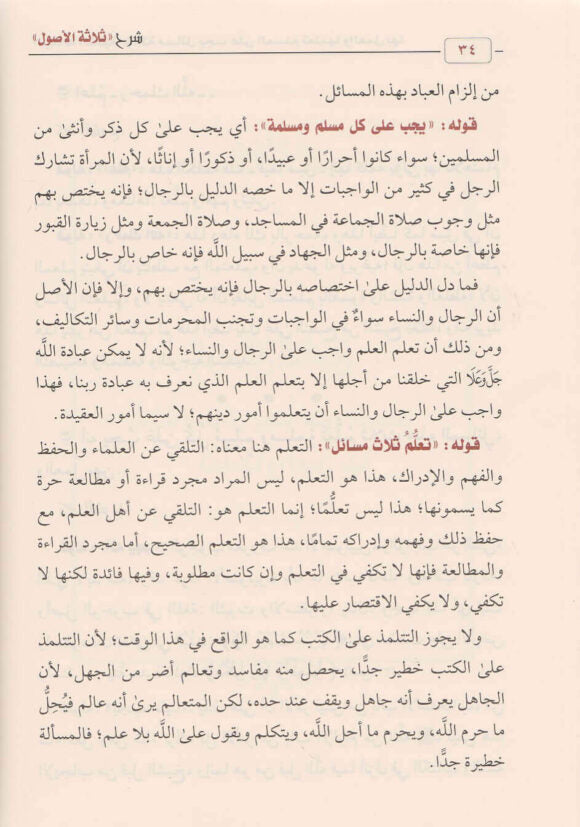 شرح «ثلاثة الأصول»
٣٤
من إلزام العباد بهذه المسائل.
قوله: «يجب على كل مسلم ومسلمة»: أي يجب علىٰ كل ذكر وأنثىٰ من
المسلمين؛ سواء كانوا أحرارًا أو عبيدًا، أو ذكورًا أو إناثًا، لأن المرأة تشارك
الرجل في كثير من الواجبات إلا ما خصه الدليل بالرجال؛ فإنه يختص بهم
مثل وجوب صلاة الجماعة في المساجد، وصلاة الجمعة ومثل زيارة القبور
فإنها خاصة بالرجال، ومثل الجهاد في سبيل اللَّه فإنه خاص بالرجال.
فما دل الدليل علىٰ اختصاصه بالرجال فإنه يختص بهم، وإلا فإن الأصل
أن الرجال والنساء سواءٌ في الواجبات وتجنب المحرمات وسائر التكاليف،
ومن ذلك أن تعلم العلم واجب علىٰ الرجال والنساء؛ لأنه لا يمكن عبادة اللَّه
جَلَّ وَعَلَا التي خلقنا من أجلها إلا بتعلم العلم الذي نعرف به عبادة ربنا، فهذا
واجب علىٰ الرجال والنساء أن يتعلموا أمور دينهم؛ لا سيما أمور العقيدة.
قوله: «تعلُّمُ ثلاث مسائل»: التعلم هنا معناه: التلقي عن العلماء والحفظ
والفهم والإدراك، هذا هو التعلم، ليس المراد مجرد قراءة أو مطالعة حرة
كما يسمونها؛ هذا ليس تعلُّمًا؛ إنما التعلم هو: التلقي عن أهل العلم، مع
حفظ ذلك وفهمه وإدراكه تمامًا، هذا هو التعلم الصحيح، أما مجرد القراءة
والمطالعة فإنها لا تكفي في التعلم وإن كانت مطلوبة، وفيها فائدة لكنها لا
تكفي، ولا يكفي الاقتصار عليها.
ولا يجوز التتلمذ علىٰ الكتب كما هو الواقع في هذا الوقت؛ لأن التتلمذ
علىٰ الكتب خطير جدًّا، يحصل منه مفاسد وتعالم أضر من الجهل، لأن
الجاهل يعرف أنه جاهل ويقف عند حده، لكن المتعالم يرىٰ أنه عالم فيُحِلُّ
ما حرم اللَّه، ويحرم ما أحل اللَّه، ويتكلم ويقول علىٰ اللَّه بلا علم؛ فالمسألة
خطيرة جدًّا.